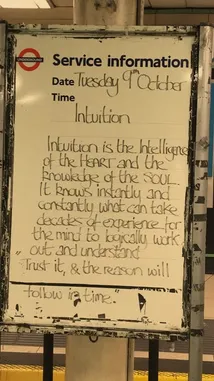 UNDERGROUND
Service information
Date Tuesday 9th October
Time
Intuition
Intuition is the Intelligence
of the HEART and the
knowledge of the SOUL.
It knows instantly and
constantly what can take
decades of experience for
the mind to logically work
out and understand
"Trust it, & the reason will
follow in time."